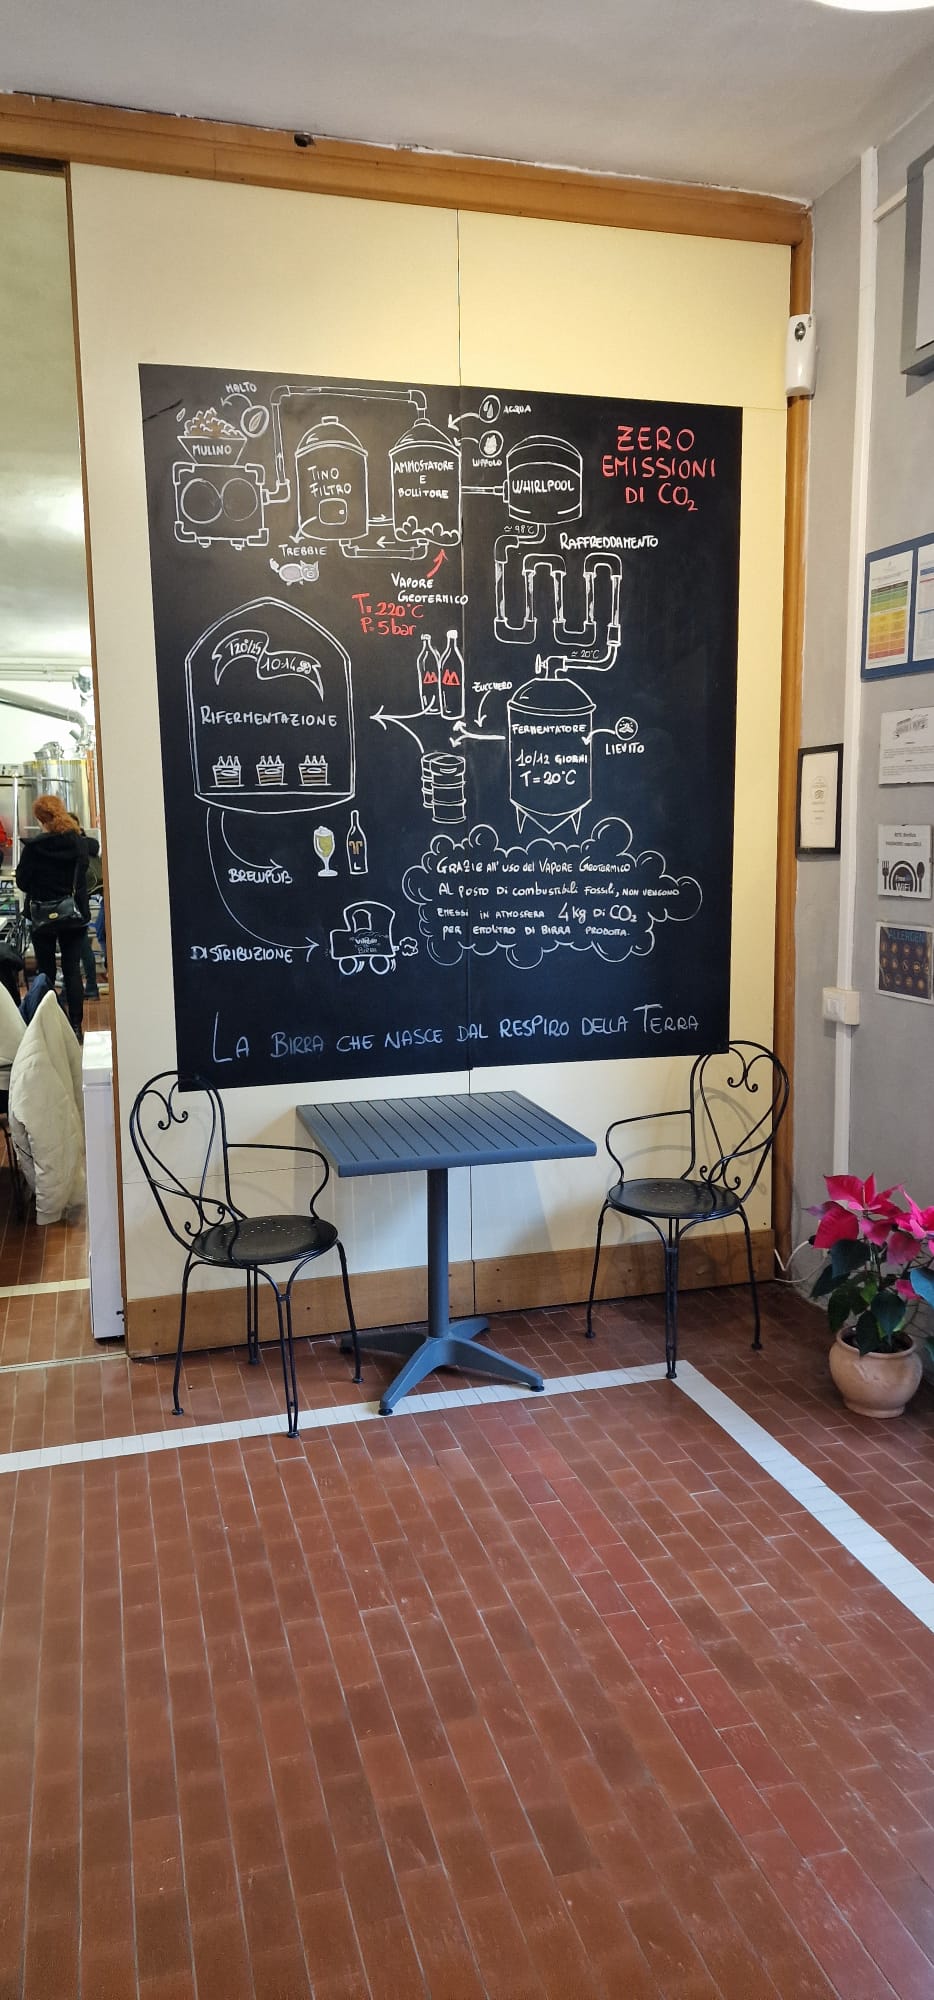 MALTO
MULINO
TINO
FILTRO
TREBBIE
AMMOSTATORE
E
BOLLITORE
ACQUA
LUPPOLO
WHIRLPOOL
≃ 98°C
RAFFREDDAMENTO
≃ 20°C
ZERO
EMISSIONI
DI CO₂
VAPORE
GEOTERMICO
T= 220°C
P= 5 bar
T 20°/25
10-14 gg
RIFERMENTAZIONE
ZUCCHERO
FERMENTATORE
10/12 GIORNI
T= 20°C
LIEVITO
BREWPUB
DISTRIBUZIONE
BIRRA
GRAZIE all' uso del VAPORE GEOTERMICO
AL POSTO DI COMBUSTIBILI FOSSILI, NON VENGONO
EMESSI IN ATMOSFERA 4 kg DI CO₂
PER ETTOLITRO DI BIRRA PRODOTTA.
LA BIRRA CHE NASCE DAL RESPIRO DELLA TERRA
Free
WiFi
ALLERGENI